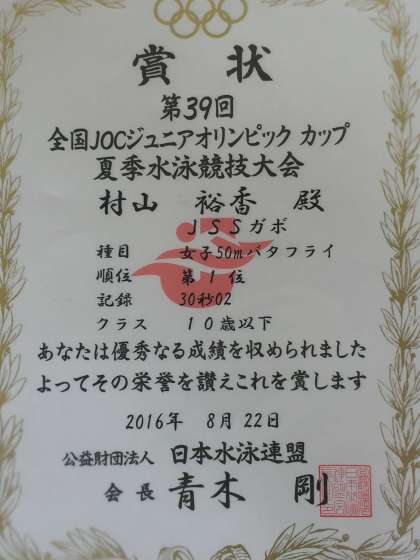 賞状
第39回
全国JOCジュニアオリンピック カップ
夏季水泳競技大会
村山 裕香 殿
JSSガボ
種目 女子50mバタフライ
順位 第1位
記録 30秒02
クラス 10歳以下
あなたは優秀なる成績を収められました
よってその栄誉を讃えこれを賞します
2016年 8月22日
公益財団法人 日本水泳連盟
会長 青木 剛